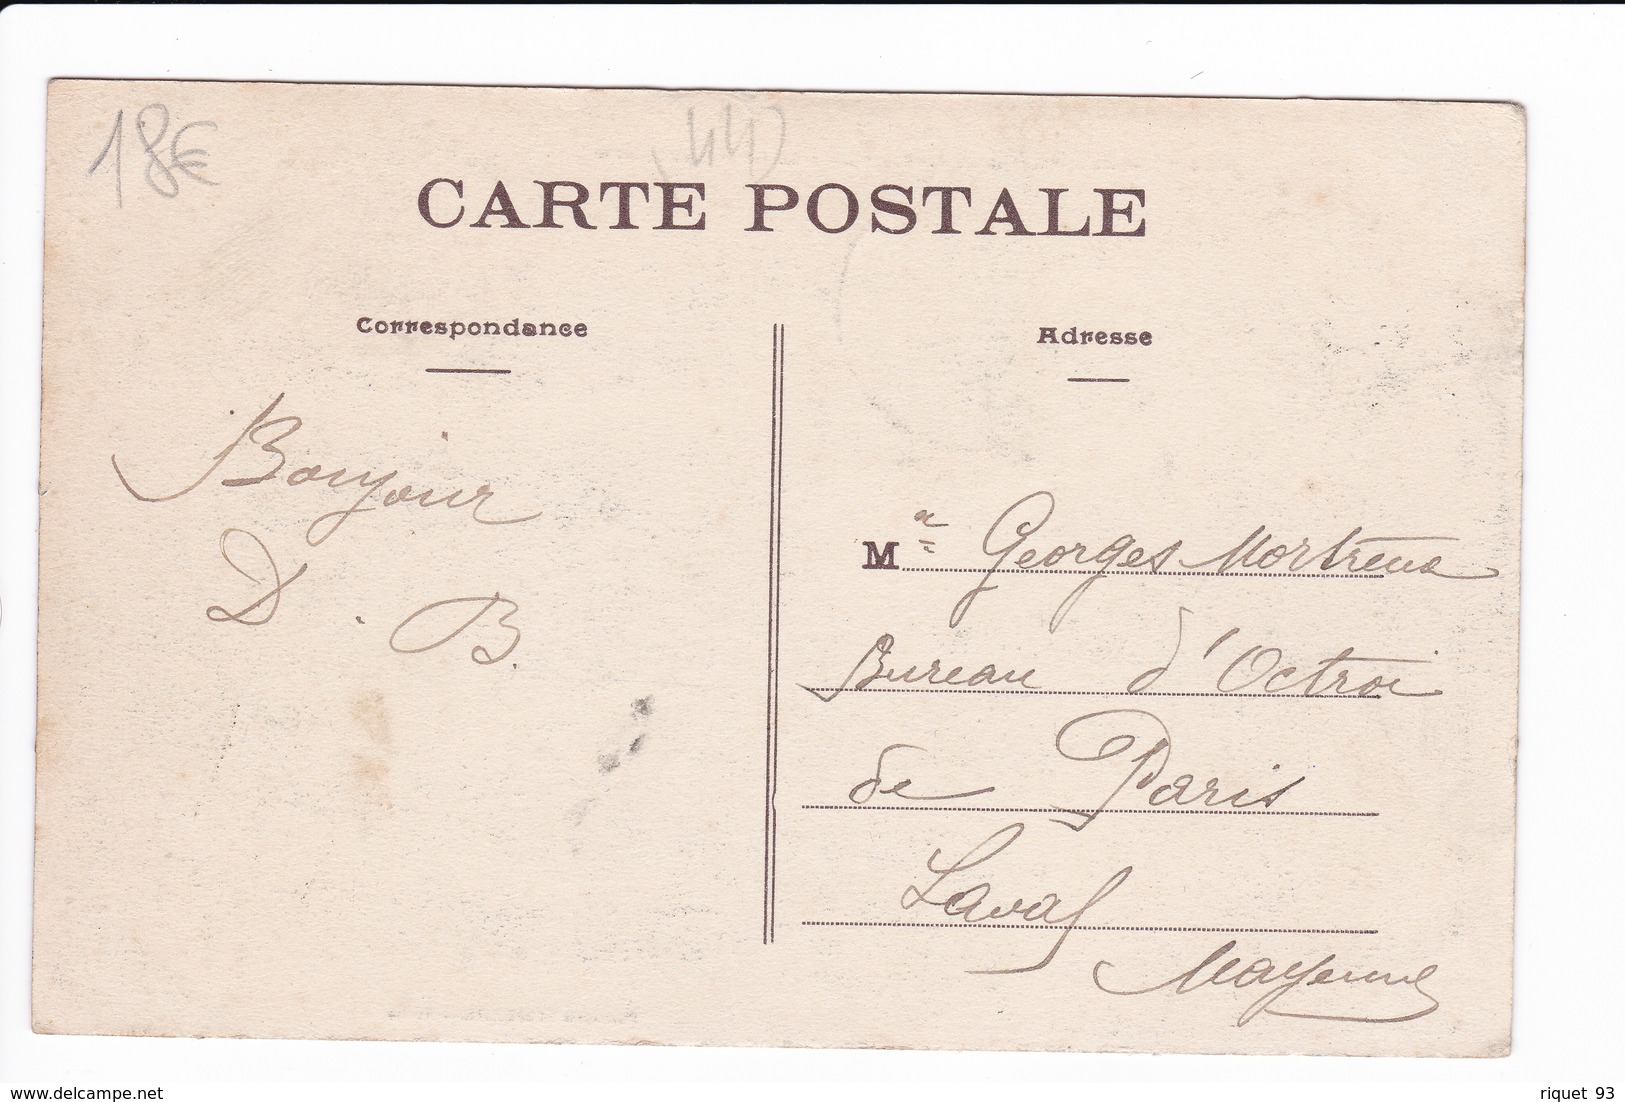 18€
44
CARTE POSTALE
Correspondance
Adresse
Bonjour
D. B.
Mr Georges Mortreux
Bureau d'Octroi
de Paris
Laval
Mayenne
www.delcampe.net
riquet 93